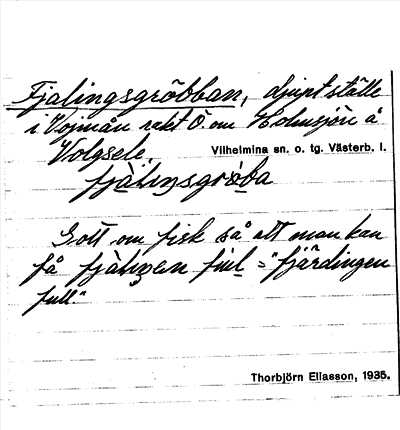 Fjalingsgröbban, djupt ställe
i Vojmån rakt Ö. om Holmsjön å
Volgsele.
Vilhelmina sn. o. tg. Västerb. l.
fjàlıŋsgröba
Gott om fisk så att man kan
få fjàlıŋen full = "fjärdingen
full."
Thorbjörn Eliasson, 1935.